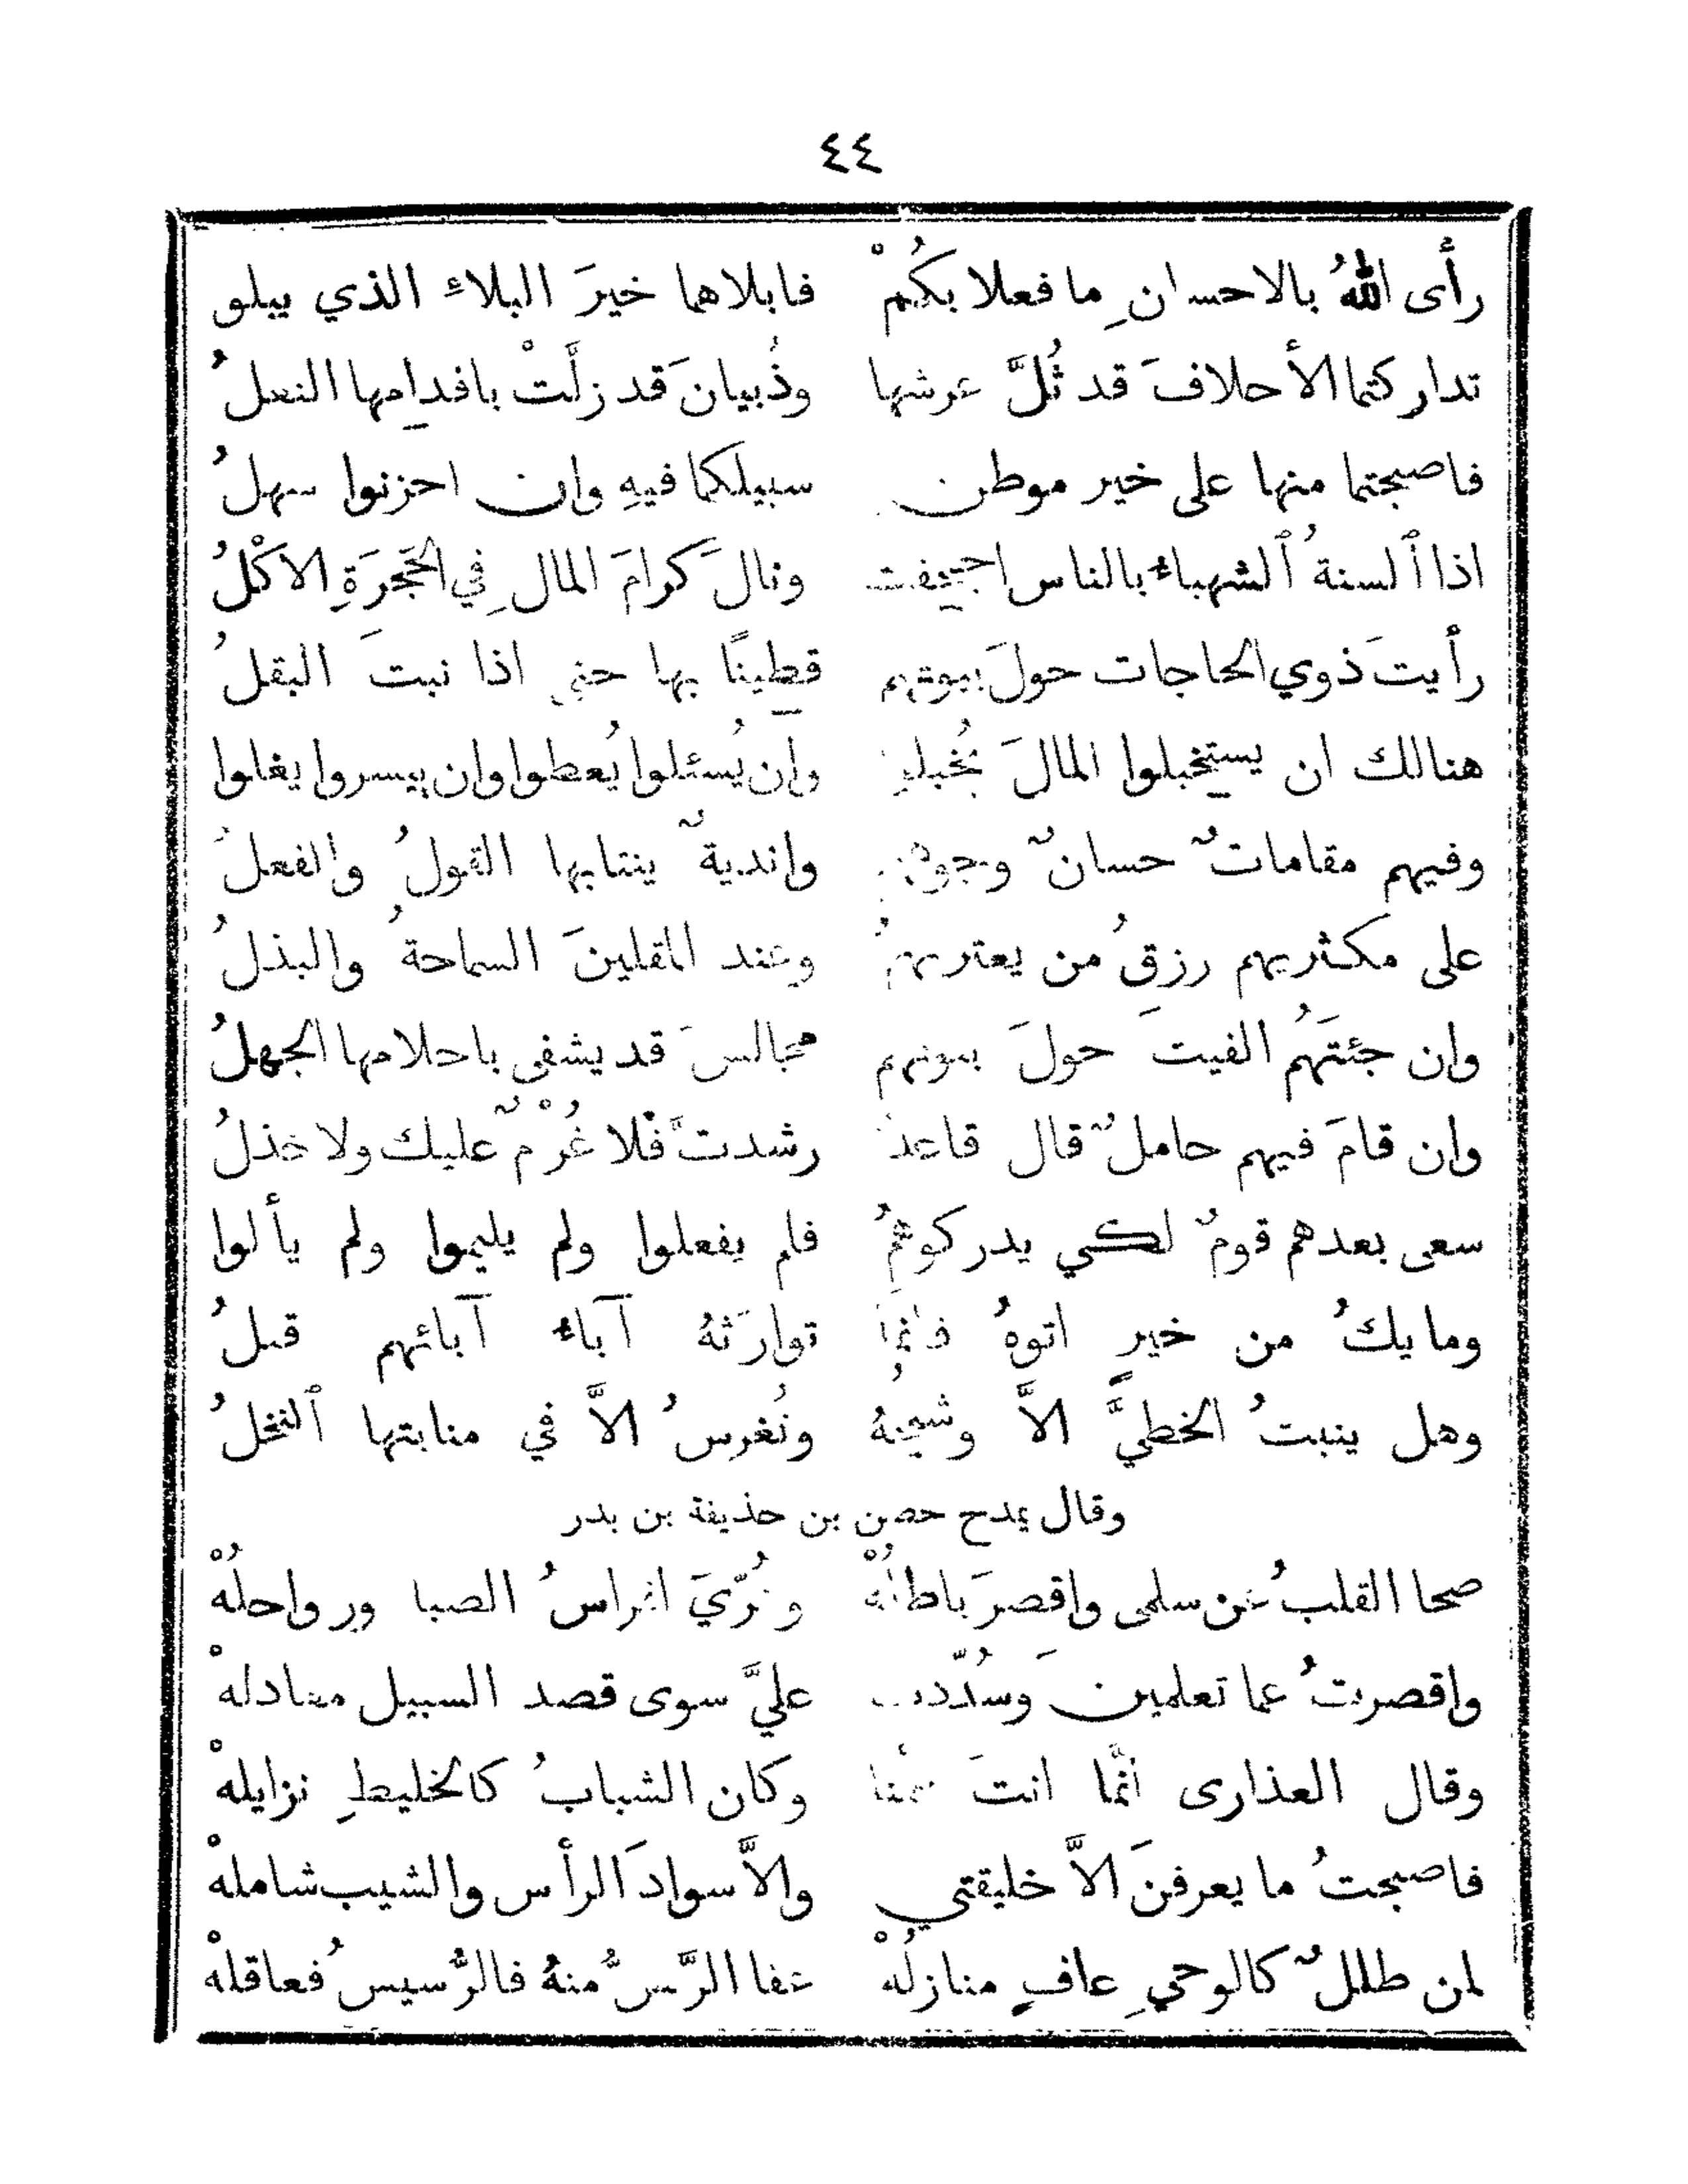 ٤٤
رأى اللهُ بالاحسانِ ما فعلا بكُمْ فابلاهما خيرَ البلاء الذي يبلو
تداركتما الأحلافَ قد ثُلَّ عرشها وذُبيانَ قد زلَّتْ باقدامِها النعلُ
فاصبحتما منها على خير موطن سبيلكما فيهِ وإن احزنوا سهلُ
اذا ٱلسنةُ ٱلشهباء بالناس اجحفت ونالَ كرامَ المالِ في الحَجرَةِ الاكْلُ
رأيتَ ذوي الحاجات حولَ بيوتهم قطينًا بها حتى اذا نبتَ البقلُ
هنالك ان يستخبِلوا المالَ يُخبلوا وإن يُسئلوا يُعطوا وإن ييسروا يغلوا
وفيهم مقاماتٌ حسانٌ وجوهها وانديةٌ ينتابها القولُ والفعلُ
على مكثريهم رزقُ من يعتريهمُ وعند المقلينَ السماحةُ والبذلُ
وإن جئتَهُم الفيتَ حولَ بيوتهم مجالسَ قد يشفى باحلامها الجهلُ
وإن قامَ فيهم حاملٌ قال قاعدٌ رشدتَ فلا غُرْمٌ عليك ولا خذلُ
سعى بعدهم قومٌ لكي يدركوهمُ فلم يفعلوا ولم يليموا ولم يألوا
وما يكُ من خيرٍ اتوهُ فانما توارَثهُ آباء آبائهم قبلُ
وهل ينبتُ الخطيَّ الاَّ وشيجُهُ وتُغرسُ الاَّ في منابتها ٱلنخلُ
وقال يمدح حصن بن حذيفة بن بدر
صحا القلبُ عن سلمى واقصرَ باطلُهْ وعُرّيَ افراسُ الصبا ورواحلُهْ
واقصرتُ عما تعلمينَ وسُدّدت عليَّ سوى قصد السبيل معادلهْ
وقال العذارى انَّما انتَ عمُّنا وكان الشبابُ كالخليطِ نزايلهْ
فاصبحتُ ما يعرفنَ الاَّ خليقتي والاَّ سوادَ الرأس والشيب شاملهْ
لمن طللٌ كالوحيِ عافٍ منازلُهْ عفا الرَّسُّ منهُ فالرُّسيسُ فعاقلهْ